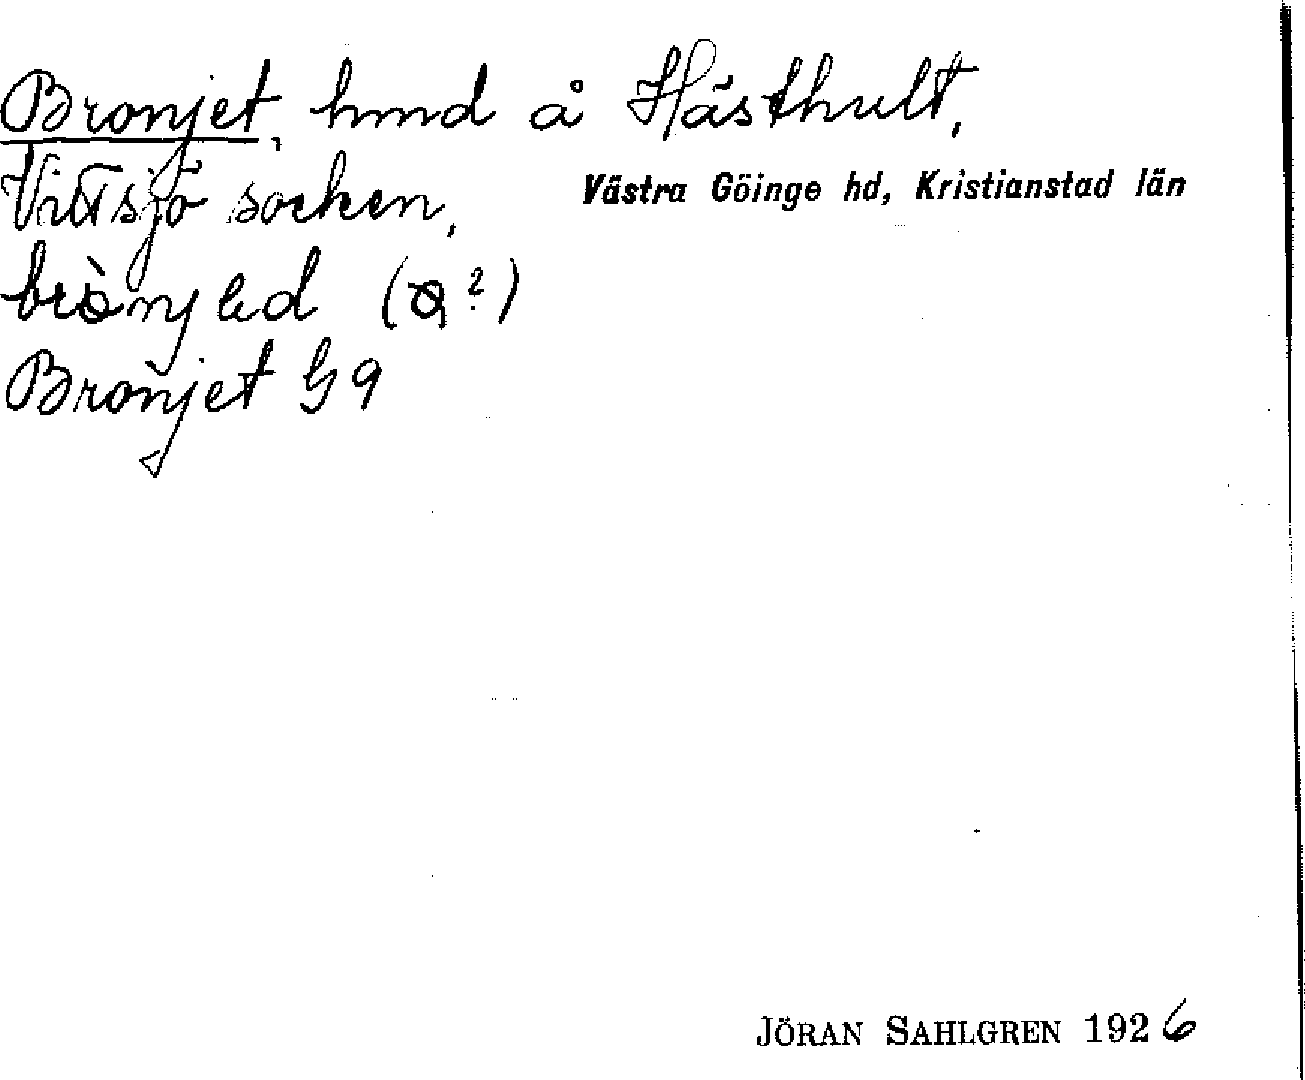 Bronjet, hmd å Hästhult,
Vittsjö socken, Västra Göinge hd, Kristianstad län
(ɑ ?)
Bronjet G 9
JÖRAN SAHLGREN 1926